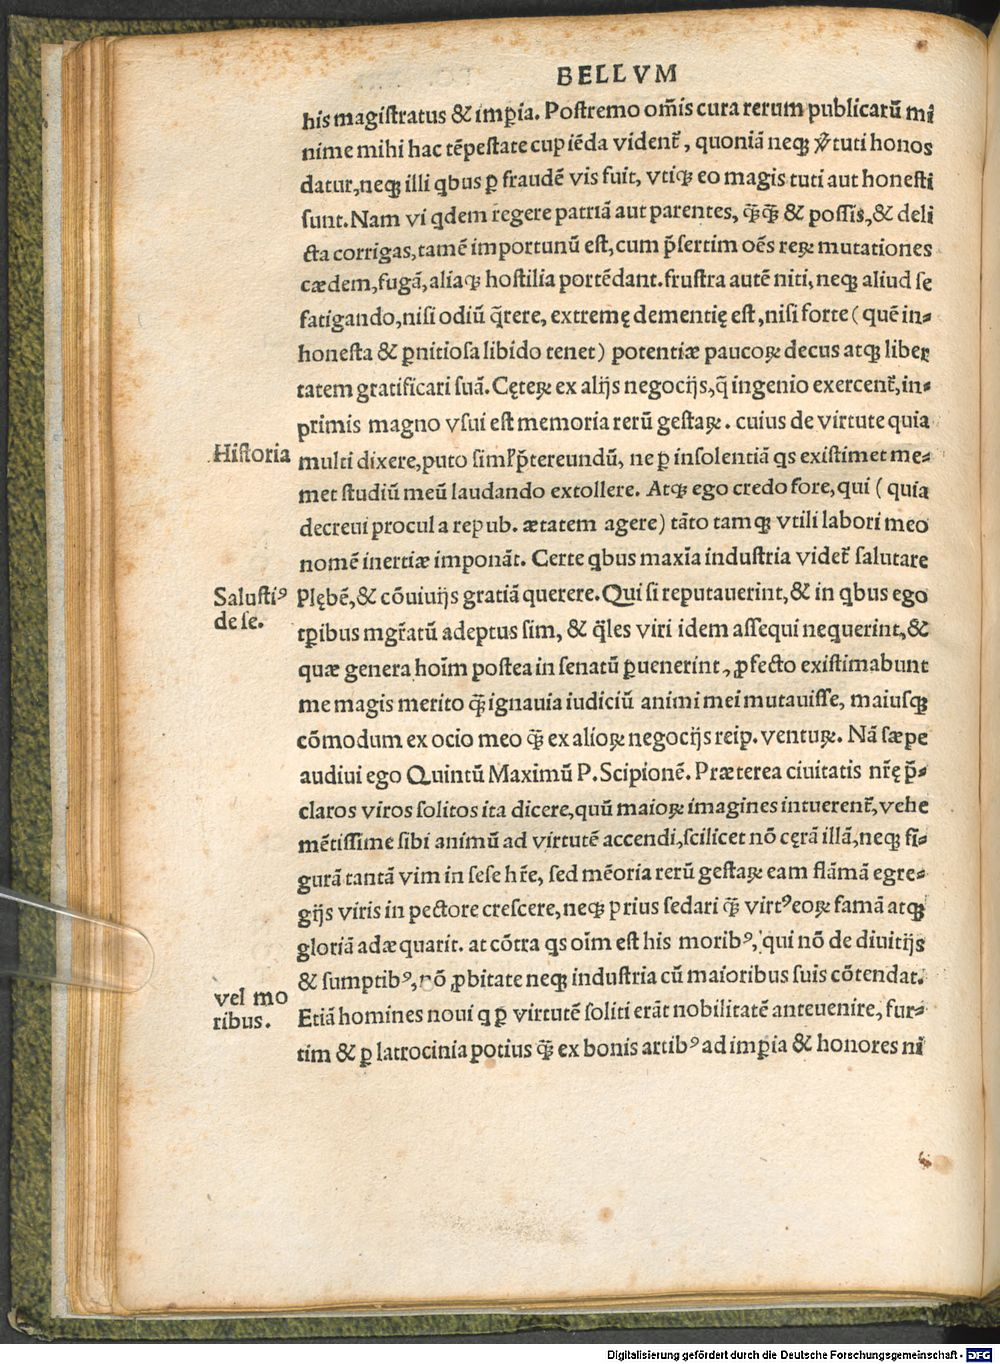 BELLVM
his magiſtratus & imp̲ia. Poſtremo om̄is cura rerum publicarū mi
nime mihi hac tēpeſtate cupiēda vident᷑, quoniā neqꝫ v̸tuti honos
datur, neqꝫ illi qbus ꝑ fraudē vis fuit, vtiqꝫ eo magis tuti aut honeſti
ſunt. Nam vi qdem regere patriā aut parentes, q̄q̄ꝫ & poſſis, & deli
cta corrigas, tamē importunū eſt, cum p̄ſertim oēs reꝝ mutationes
cædem, fugā, aliaqꝫ hoſtilia portēdant. fruſtra autē niti, neqꝫ aliud ſe
fatigando, niſi odiū q̄rere, extremę dementię eſt, niſi forte ( quē in⸗
honeſta & ꝑnitioſa libido tenet) potentiæ paucoꝝ decus atqꝫ liber
tatem gratificari ſuā. Cęteꝝ ex alijs negocijs, q̄ ingenio exercent᷑, in⸗
primis magno vſui eſt memoria rerū geſtaꝝ. cuius de virtute quia
Hiſtoria
multi dixere, puto ſimꝉ p̄tereundū, ne ꝑ inſolentiā qs exiſtimet me⸗
met ſtudiū meū laudando extollere. Atqꝫ ego credo fore, qui ( quia
decreui procul a repub. ætatem agere) tāto tamqꝫ vtili labori meo
nomē inertiæ imponāt. Certe qbus maxīa induſtria videt᷑ ſalutare
Saluſtiꝰ
de ſe.
Plębē, & cōuiuijs gratiā querere. Qui ſi reputauerint, & in qbus ego
tꝑibus mgr̄atū adeptus ſim, & q̄les viri idem aſſequi nequerint, &
quæ genera hoīm poſtea in ſenatū ꝑuenerint, ꝓfecto exiſtimabunt
me magis merito q̄ꝫ ignauia iudiciū animi mei mutauiſſe, maiuſqꝫ
cōmodum ex ocio meo q̄ꝫ ex alioꝝ negocijs reip. ventuꝝ. Nā ſæpe
audiui ego Quintū Maximū P. Scipionē. Præterea ciuitatis nr̄ę p̄⸗
claros viros ſolitos ita dicere, quū maioꝝ imagines intuerent᷑, vehe
mētiſſime ſibi animū ad virtutē accendi, ſcilicet nō cęrā illā, neqꝫ fi⸗
gurā tantā vim in ſeſe hr̄e, ſed mēoria rerū geſtaꝝ eam flāmā egre⸗
gijs viris in pectore creſcere, neqꝫ prius ſedari q̄ꝫ virtꝰ eoꝝ famā atqꝫ
gloriā adæquarit. at cōtra qs oīm eſt his moribꝰ, qui nō de diuitijs
& ſumptibꝰ, nō ꝓbitate neqꝫ induſtria cū maioribus ſuis cōtendat.
vel mo
ribus.
Etiā homines noui q ꝑ virtutē ſoliti erāt nobilitatē anteuenire, fur⸗
tim & ꝑ latrocinia potius q̄ꝫ ex bonis artibꝰ ad imꝑia & honores ni
Digitalisierung gefördert durch die Deutsche Forschungsgemeinschaft - DFG